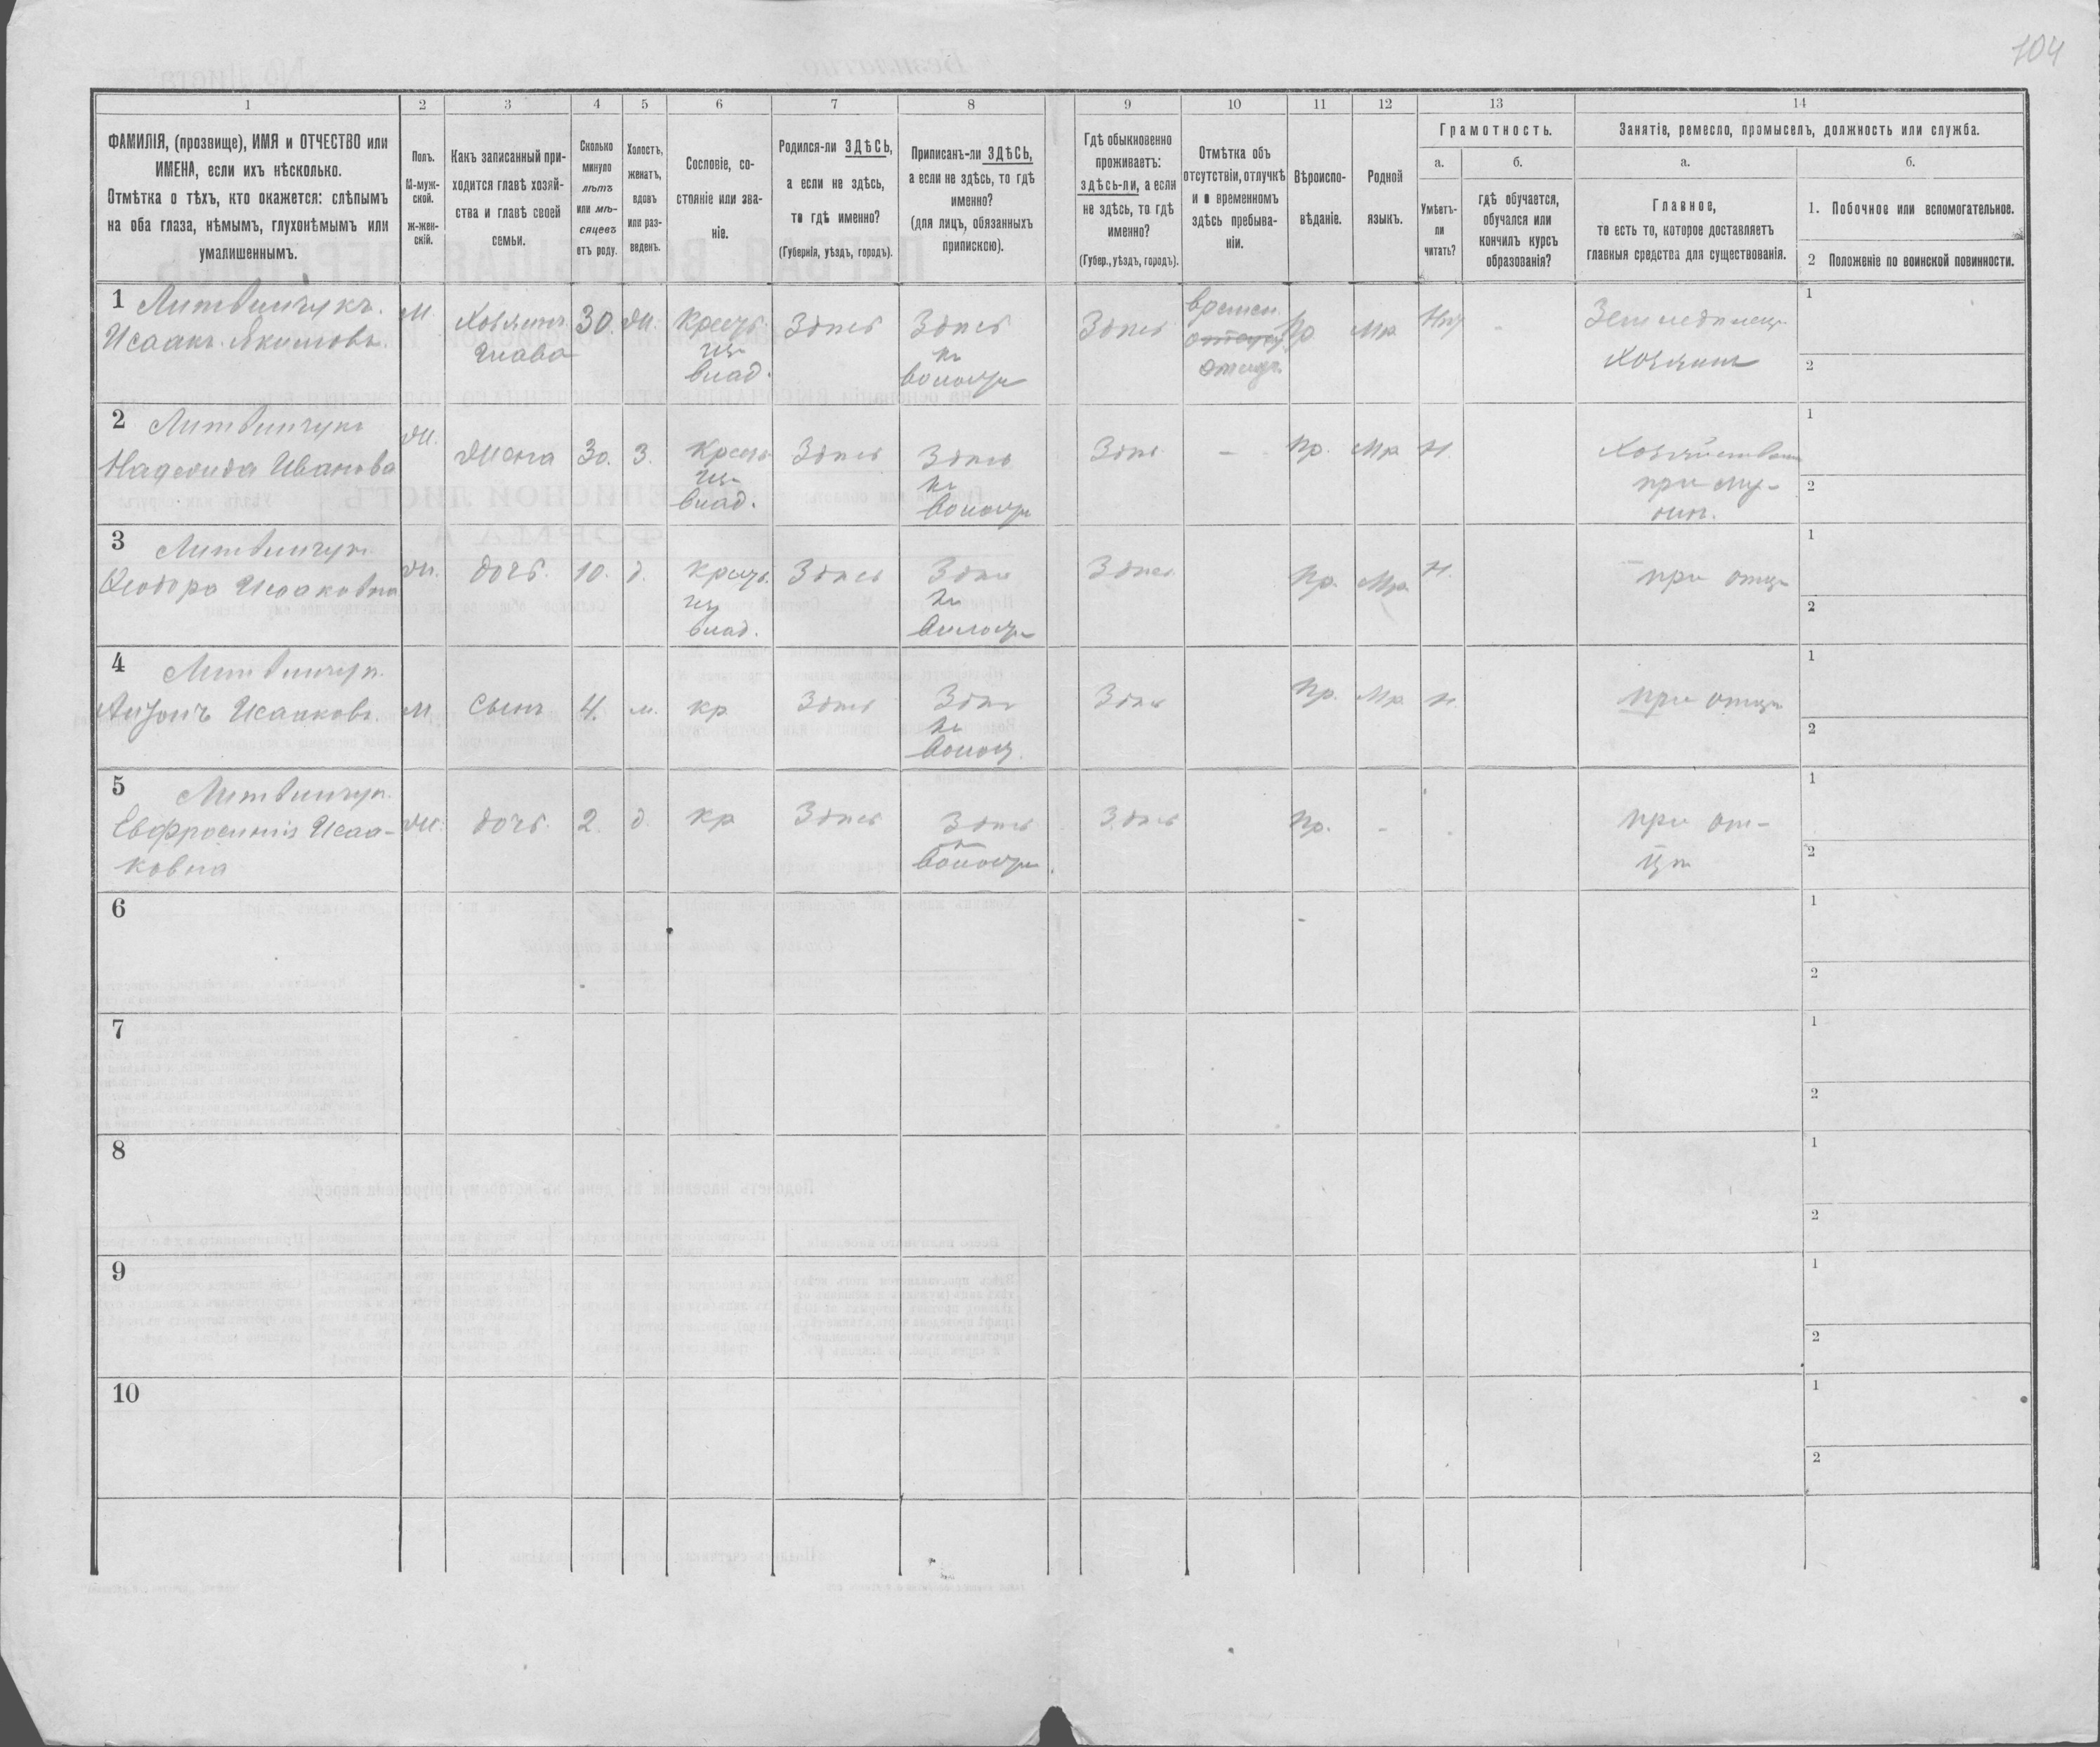 104
1
2
3
4
5
6
7
8
9
10
11
12
13
14
ФАМИЛІЯ, (прозвище), ИМЯ и ОТЧЕСТВО или
ИМЕНА, если ихъ нѣсколько.
Отмѣтка о тѣхъ, кто окажется: слѣпымъ
на оба глаза, нѣмымъ, глухонѣмымъ или
умалишеннымъ.
Полъ.
М-муж-
ской.
ж-жен-
скій.
Какъ записанный при-
ходится главѣ хозяй-
ства и главѣ своей
семьи.
Сколько
минуло
лѣтъ
или мѣ-
сяцевъ
отъ роду.
Холостъ,
женатъ,
вдовъ
или раз-
веденъ.
Сословіе, со-
стояніе или зва-
ніе.
Родился-ли ЗДѢСЬ,
а если не здѣсь,
то гдѣ именно?
(Губернія, уѣздъ, городъ).
Приписанъ-ли ЗДѢСЬ,
а если не здѣсь, то гдѣ
именно?
(для лицъ, обязанныхъ
припискою).
Гдѣ обыкновенно
проживаетъ:
здѣсь-ли, а если
не здѣсь, то гдѣ
именно?
(Губер., уѣздъ, городъ).
Отмѣтка объ
отсутствіи, отлучкѣ
и о временномъ
здѣсь пребыва-
ніи.
Вѣроиспо-
вѣданіе.
Родной
языкъ.
Грамотность.
а.
Умѣетъ-
ли
читать?
б.
гдѣ обучается,
обучался или
кончилъ курсъ
образованія?
Занятіе, ремесло, промыселъ, должность или служба.
а.
Главное,
то есть то, которое доставляетъ
главныя средства для существованія.
б.
1. Побочное или вспомогательное.
2 Положеніе по воинской повинности.
1 Литвинчукъ.
Исаакъ Якимовъ.
М
Хозяинъ
Глава
30.
Ж.
Крест.
из
влад.
Здѣсь
Здѣсь
въ
волости
Здѣсь
времен.
отлуч.
Пр
Мр
Нѣт
-
Земледѣлец
Хозяин
1
2
2 Литвинчукъ
Надежда Иванова
Ж.
Жена
30.
З.
Крест
из
влад.
Здѣсь
Здѣсь
въ
волости
Здѣсь
-
Пр.
Мр
Н.
при му-
жѣ.
1
2
3 Литвинчук
Ѳеодора Исааковна
Ж.
дочь.
10.
д.
Крест.
из
влад.
Здѣсь
Здѣсь
въ
волости
Здѣсь
Пр.
Мр.
Н.
при отцѣ
1
2
4 Литвинчук.
Антонъ Исааковъ.
М
Сынъ
4.
м.
кр
Здѣсь
Здѣсь
въ
волост.
Здѣсь
Пр.
Мр
Н.
при отцѣ
1
2
5 Литвинчук.
Евфросинія Исаа-
ковна
Ж.
дочь.
2.
д.
кр
Здѣсь
Здѣсь
въ
волости.
Здѣсь
Пр.
-
-
при от-
цѣ
1
2
6
1
2
7
1
2
8
1
2
9
1
2
10
1
2